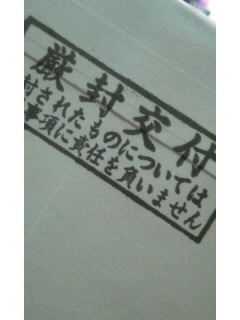 厳封交付
封されたものについては
事項に責任を負いません